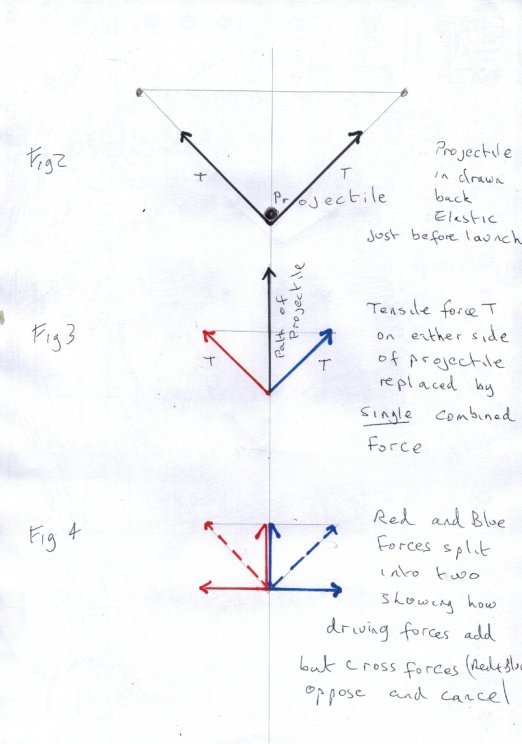 Fig 2
T
T
Projectile
Projectile
in drawn
back
Elastic
just before launch
Fig 3
T
T
Path of
Projectile
Tensile force T
on either side
of projectile
replaced by
single combined
force
Fig 4
Red and Blue
Forces split
into two
showing how
driving forces add
but cross forces (Red+Blu
oppose and cancel